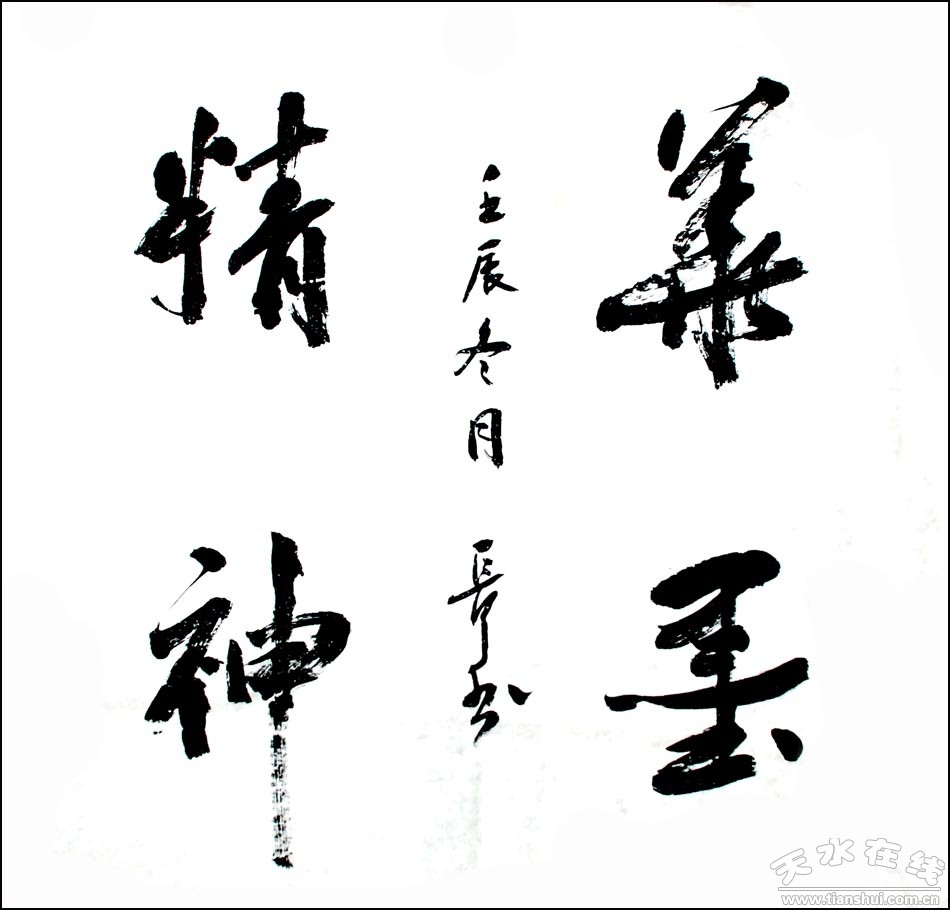 華墨
壬辰冬月
書
精神
天水在线
www.tianshui.com.cn